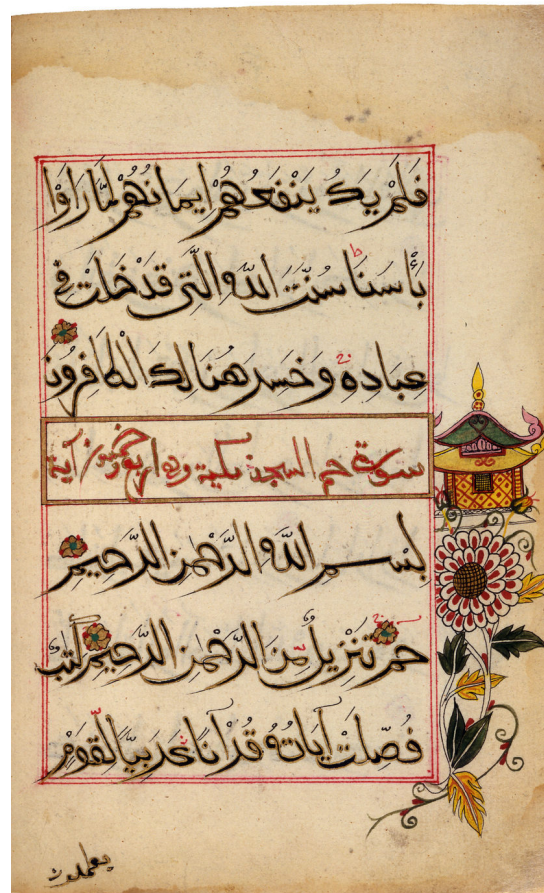 فَلَمْ يَكُ يَنْفَعُهُمْ إِيمَانُهُمْ لَمَّا رَاَوْا
بَأْسَنَا سُنَّتَ اللَّهِ الَّتِي قَدْ خَلَتْ فِي
عِبَادِهِ وَخَسِرَ هُنَالِكَ الْكَافِرُونَ
سورة حم السجدة مكية وهي اربع وخمسون آية
بِسْمِ اللَّهِ الرَّحْمٰنِ الرَّحِيمِ
حم تَنْزِيلٌ مِنَ الرَّحْمٰنِ الرَّحِيمِ كِتَابٌ
فُصِّلَتْ آيَاتُهُ قُرْآنًا عَرَبِيًّا لِقَوْمٍ
يعلمون